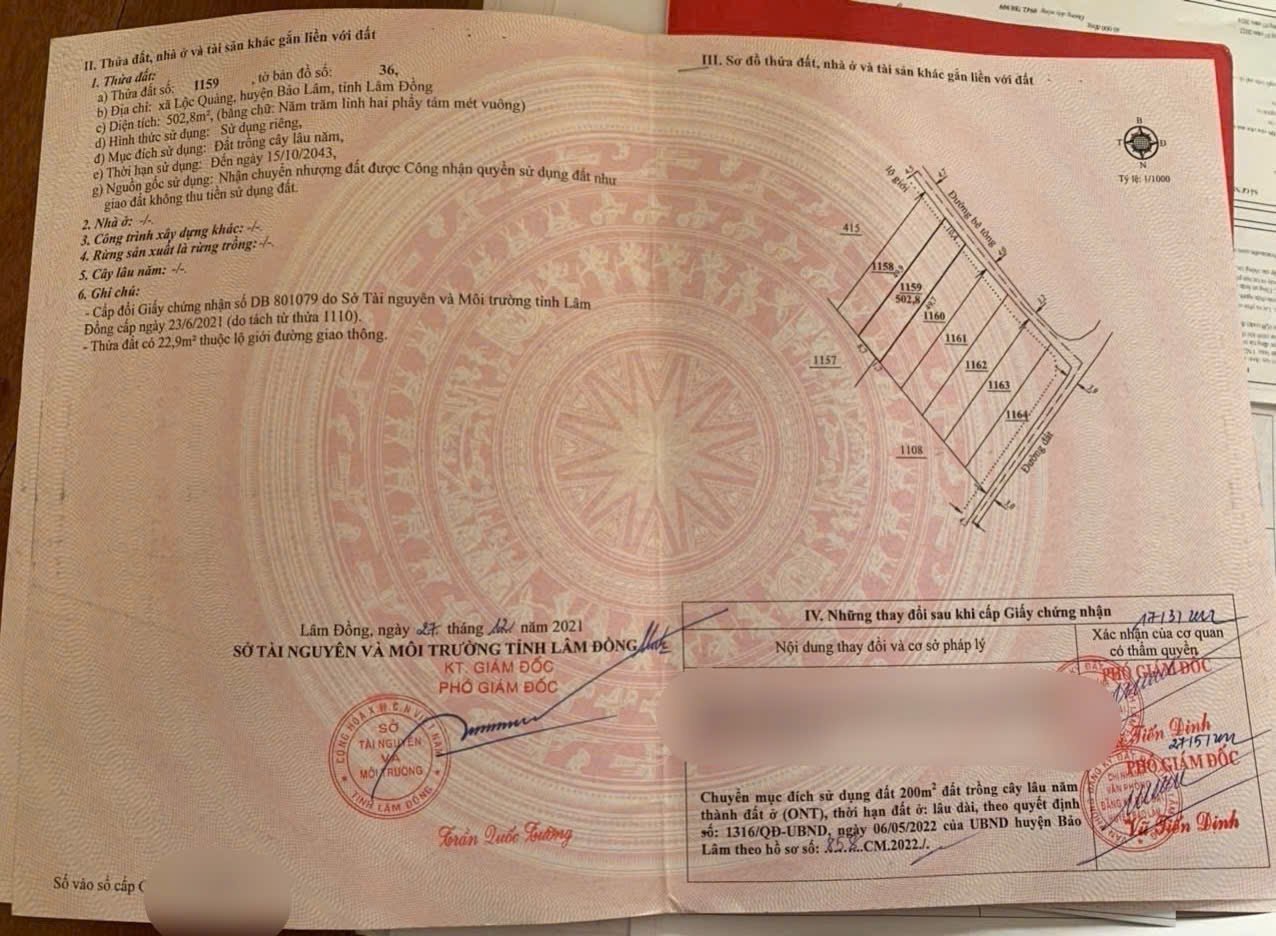 II. Thửa đất, nhà ở và tài sản khác gắn liền với đất
1. Thửa đất:
a) Thửa đất số: 1159 , tờ bản đồ số: 36,
b) Địa chỉ: xã Lộc Quảng, huyện Bảo Lâm, tỉnh Lâm Đồng
c) Diện tích: 502,8m², (bằng chữ: Năm trăm linh hai phẩy tám mét vuông)
d) Hình thức sử dụng: Sử dụng riêng,
đ) Mục đích sử dụng: Đất trồng cây lâu năm,
e) Thời hạn sử dụng: Đến ngày 15/10/2043,
g) Nguồn gốc sử dụng: Nhận chuyển nhượng đất được Công nhận quyền sử dụng đất như
giao đất không thu tiền sử dụng đất.
2. Nhà ở: -/-.
3. Công trình xây dựng khác: -/-.
4. Rừng sản xuất là rừng trồng: -/-.
5. Cây lâu năm: -/-.
6. Ghi chú:
- Cấp đổi Giấy chứng nhận số DB 801079 do Sở Tài nguyên và Môi trường tỉnh Lâm
Đồng cấp ngày 23/6/2021 (do tách từ thửa 1110).
- Thửa đất có 22,9m² thuộc lộ giới đường giao thông.
Lâm Đồng, ngày 27 tháng 12 năm 2021
SỞ TÀI NGUYÊN VÀ MÔI TRƯỜNG TỈNH LÂM ĐỒNG
KT. GIÁM ĐỐC
PHÓ GIÁM ĐỐC
CỘNG HÒA X.H.C.N VIỆT NAM
SỞ
TÀI NGUYÊN
VÀ
MÔI TRƯỜNG
TỈNH LÂM ĐỒNG
Trần Quốc Trường
Số vào sổ cấp
III. Sơ đồ thửa đất, nhà ở và tài sản khác gắn liền với đất
B
T
Đ
N
Tỷ lệ: 1/1000
lộ giới
Đường bê tông
415
1158
1159
502,8
1160
1161
1157
1162
1163
1164
1108
Đường đất
IV. Những thay đổi sau khi cấp Giấy chứng nhận
Nội dung thay đổi và cơ sở pháp lý
17/3/2022
Xác nhận của cơ quan
có thẩm quyền
PHÓ GIÁM ĐỐC
Tiến Dinh
27/5/2022
PHÓ GIÁM ĐỐC
Vũ Tiến Dinh
Chuyển mục đích sử dụng đất 200m² đất trồng cây lâu năm
thành đất ở (ONT), thời hạn đất ở: lâu dài, theo quyết định
số: 1316/QĐ-UBND, ngày 06/05/2022 của UBND huyện Bảo
Lâm theo hồ sơ số: 858.CM.2022./.